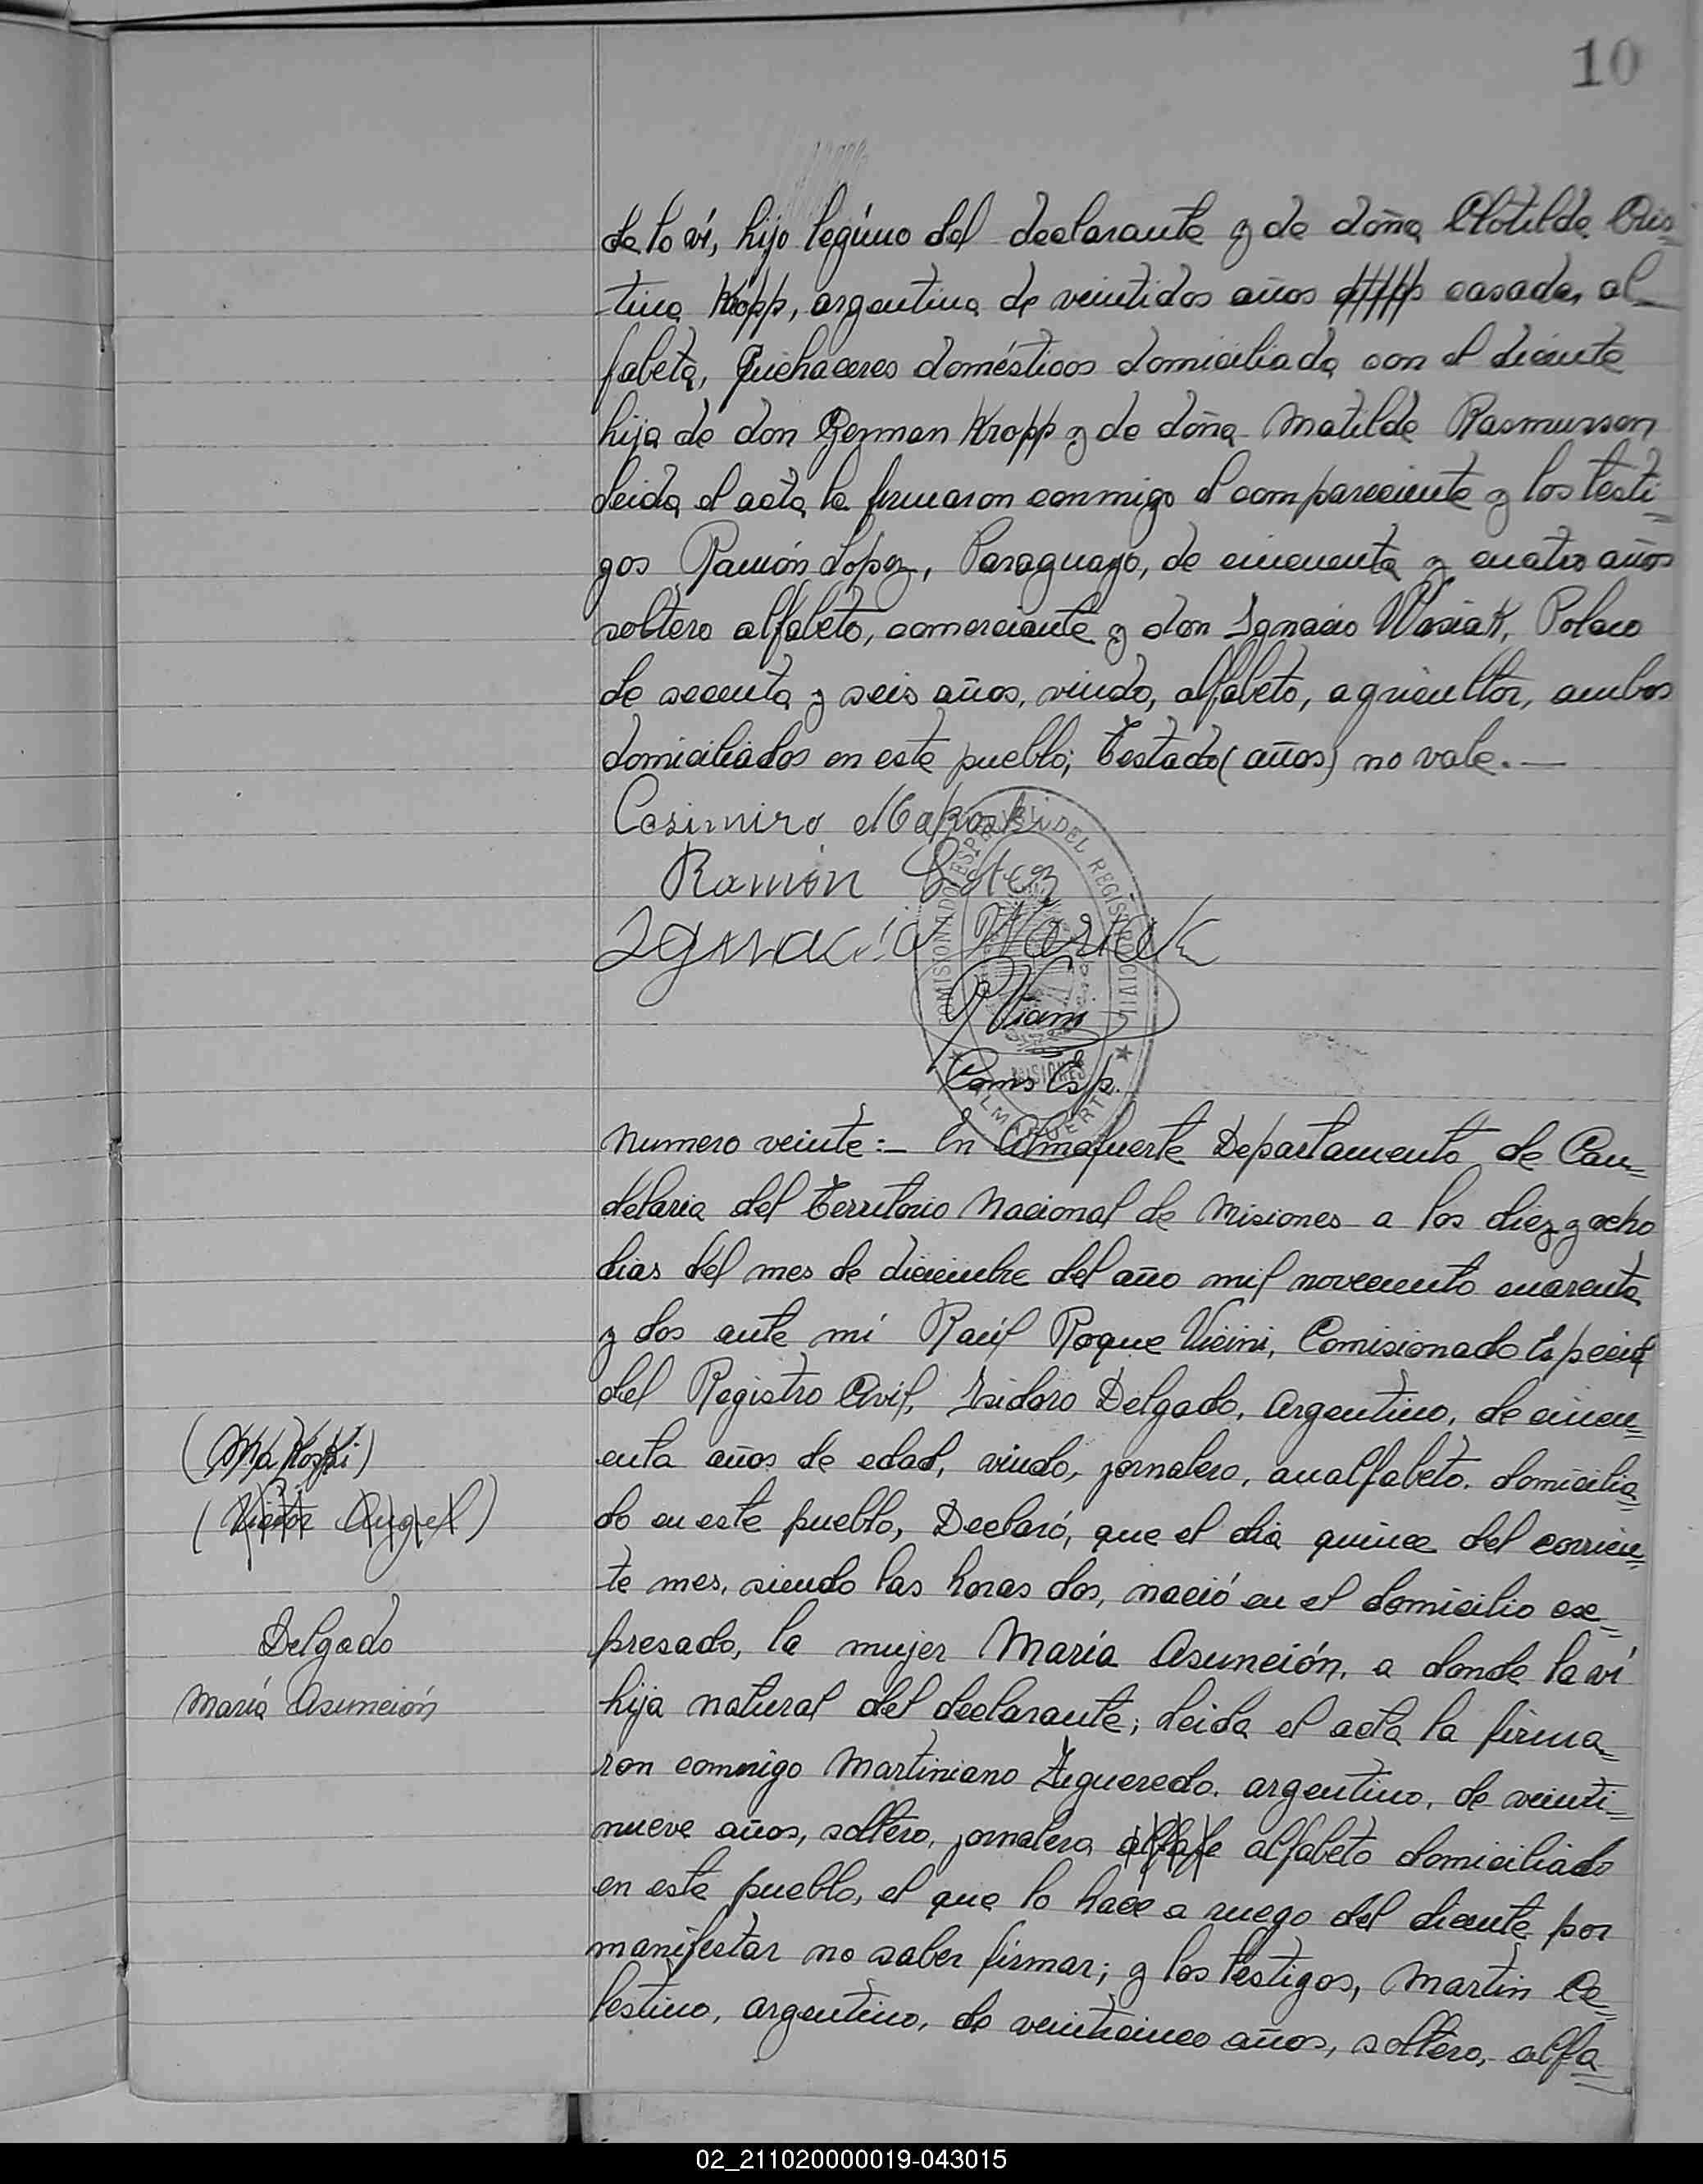 10
de lo ví, hijo legíuno del declarante y de doña Clotilde Cris=
tina Kropp, argentina de veintidos años casada, al_
fabeta, Quehaceres domésticos domiciliada con el diciente
hija de don German Kropp y de doña Matilde Rasmusson
leida el acta la firmaron conmigo el compareciente y los testi=
gos Ramón Lopez, Paraguayo, de cincuenta y cuatro años
soltero alfabeto, comerciante y don Ignacio Wasiak, Polaco
de secenta y seis años, viudo, alfabeto, agricultor, ambos
domiciliados en este pueblo; Testado (años) no vale.—
Casimiro Makoski
Ramón López
Ignacio Wasiak
Coms Esp.
COMISIONADO ESPECIAL DEL REGISTRO CIVIL
MISIONES
ALMAFUERTE
Numero veinte:— En Almafuerte Departamento de Can=
delaria del Territorio Nacional de Misiones a los diez y ocho
dias del mes de diciembre del año mil novecento cuarenta
y dos ante mí Raúl Roque Vicini, Comisionado Especial
del Registro Civil, Isidoro Delgado, Argentino, de cincu=
enta años de edad, viudo, jornalero, analfabeto, domicilia=
do en este pueblo, Declaró, que el dia quince del corrien=
te mes, siendo las horas dos, nació en el domicilio ex=
presado, la mujer María Asunción, a donde la ví
hija natural del declarante; leida el acta la firma=
ron conmigo Martiniano Figueredo, argentino, de veinti=
nueve años, soltero, jornalero alfabe alfabeto domiciliado
en este pueblo, el que lo hace a ruego del diciente por
manifestar no saber firmar; y los testigos, Martin Ce=
lestino, argentino, de veinticinco años, soltero, alfa=
(Makoski)
(Victor Angel)
Delgado
María Asunción
02_211020000019-043015